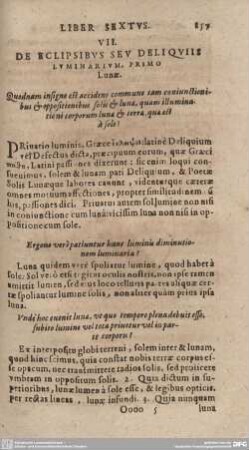 LIBER SEXTVS. 857
VII.
DE ECLIPSIBVS SEV DELIQVIIS
LVMINARIVM, PRIMO
Lunæ.
Quodnam insigne est accidens commune tam coniunctioni-
bus & oppositionibus solis & lunæ, quam illumina-
tioni corporum luna & terra, qua est
à sole?
PRiuatio luminis, Græcè latinè Deliquium
vel Defectus dicta, præcipuum eorum, quæ Græci
Latini passiones dixerunt: sic enim loqui con-
sueuimus, solem & lunam pati Deliquium, & Poëtæ
Solis Lunæque labores canunt, videanturque cæteræ
omnes motuum affectiones, propter similitudinem
huius, passiones dici. Priuatur autem sol lumine non nisi
in coniunctione cum luna: vicissim luna non nisi in op-
positione cum sole.
Ergone verè patiuntur hanc luminis diminutio-
nem luminaria?
Luna quidem verè spoliatur lumine, quod habet à
sole: Sol verò etsi eripitur oculis nostris, non ipse tamen
amittit lumen, sed
spoliantur lumine solis, non aliter quàm prius ipsa
luna.
Vnde hoc euenit luna, vt quo tempore plena debuit esse,
subito lumine vel tota priuetur vel in par-
te corporis?
Ex interposito globi terreni, solem inter & lunam,
quod hinc scimus, quia constat nobis terræ corpus es-
se opacum, nec transmittere radios solis, sed proiicere
vmbram in oppositum solis. 2. Quia dictum in su-
perioribus, lunæ lumen à sole esse, & legibus opticis,
per rectas lineas, lunæ infundi. 3. Quia nunquam
Oooo 5 luna